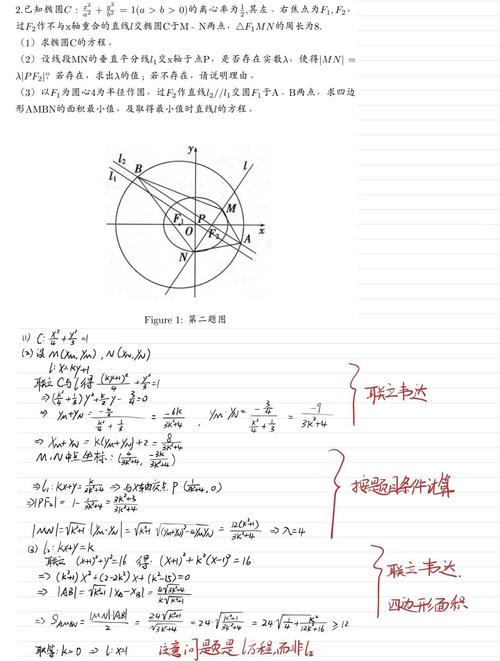 2.已知椭圆C : x²/a² + y²/b² = 1(a > b > 0)的离心率为1/2,其左、右焦点为F₁, F₂,
过F₂作不与x轴重合的直线l交椭圆C于M、N两点, △F₁MN的周长为8.
（1）求椭圆C的方程。
（2）设线段MN的垂直平分线l₁交x轴于点P，是否存在实数λ，使得|MN| =
λ|PF₂|？若存在，求出λ的值；若不存在，请说明理由。
（3）以F₁为圆心4为半径作圆，过F₂作直线l₂//l₁交圆F₁于A、B两点，求四边
形AMBN的面积最小值，及取得最小值时直线l的方程。
y
l₂
l₁
B
l
M
F₁
P
O
F₂
x
N
A
Figure 1: 第二题图
(1) C: x²/4 + y²/3 =1
(2) 设 M(xM, yM), N(xN, yN)
l: x=ky+1
联立 C与l得 (ky+1)²/4 + y²/3 =1
⇒ yM+yN = = -6k/(3k²+4) , yM·yN = = -9/(3k²+4)
⇒ xM+xN = k(yM+yN)+2 = 8/(3k²+4)
M,N中点坐标: (4/(3k²+4), -3k/(3k²+4))
⇒ l₁: kx+y= k/(3k²+4) ⇒ 与x轴交点 P (1/(3k²+4), 0)
⇒|PF₂| = 1 - 1/(3k²+4) = (3k²+3)/(3k²+4)
|MN|=√(k²+1) |yM-yN| = √(k²+1) √((yM+yN)²-4yMyN) = 12(k²+1)/(3k²+4) ⇒ λ=4
(3) l₂: kx+y=k
联立 (x+1)²+y²=16 得: (x+1)²+k²(x-1)²=16
⇒ (k²+1)x²+(2-2k²)x+(k²-15)=0
⇒ |AB| = √(k²+1) |xA-xB| = 4√(3k²+4)/√(k²+1)
⇒ SAMBN = |MN||AB|/2 = 24√(k²+1)/√(3k²+4) = 24·√((k²+1)/(3k²+4)) = ≥12
取等: k=0 ⇒ l: x=1
联立韦达
按题目条件计算
联立韦达.
四边形面积
注意问题是l方程,而非l₂